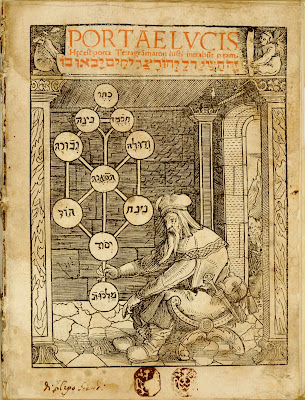 PORTAE LVCIS
Hęc est porta Tetragrāmaton iusti intrabūt p eam.
זה השער ליהוה צדיקים יבאו בו
כתר
חכמה בינה
גדולה גבורה
תפארת
נצח הוד
יסוד
מלכות